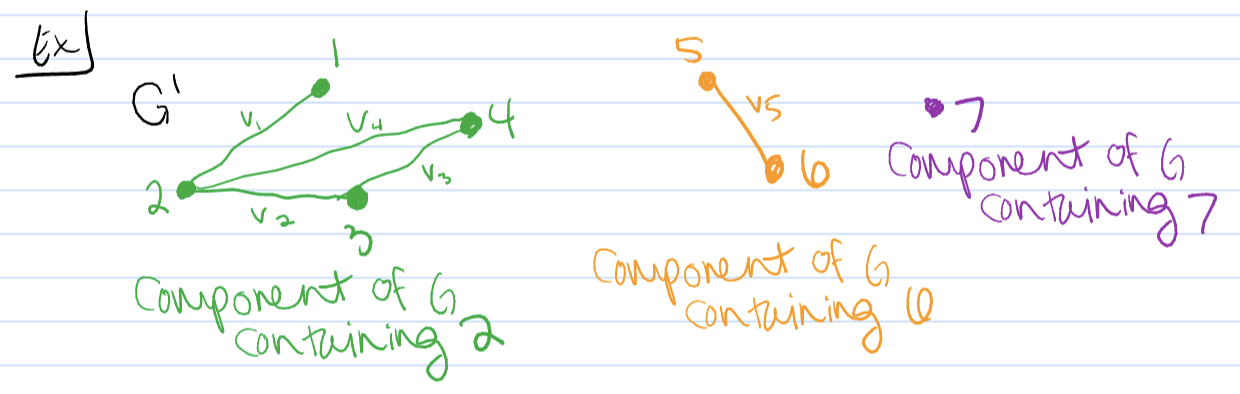 Ex
G'
1
v₁
v₄
4
2
v₂
v₃
3
Component of G
containing 2
5
v5
6
Component of G
containing 6
7
Component of G
containing 7